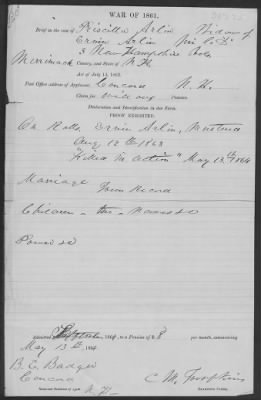 WAR OF 1861.
Brief in the case of Priscilla Arlin Widow of
Ervin Arlin
3 New Hampshire Vols
Merrimack County, and State of N.H.
Act of July 14, 1862.
Post Office address of Applicant, Concord N. H.
Claim for Pension.
Declaration and Identification in due Form.
PROOF EXHIBITED:
On Rolls Ervin Arlin, Mustered
Aug 12th 1863
"Killed in action" May 13th 1864
Marriage Town Record
Children
Admitted 1864, to a Pension of $ 8 per month, commencing
May 13th 1864
B. E. Badger
Concord
N. H.